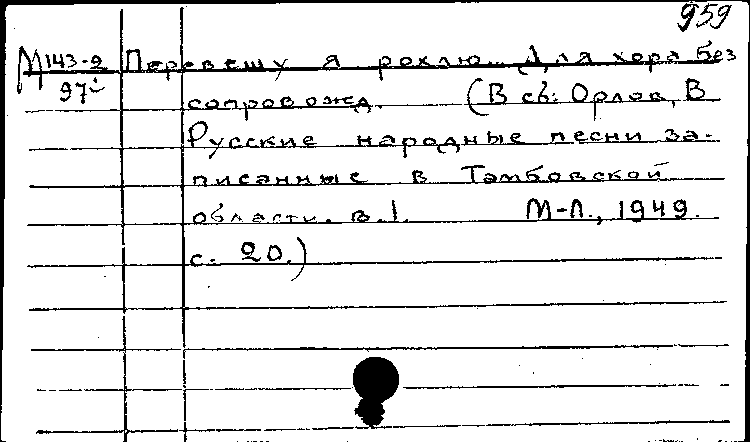 959
М 143-2 Перевешу я рохлю... Для хора без
97 i
сопровожд. (В сб: Орлов, В
Русские народные песни за-
писанные в Тамбовской
области. в. 1. М-Л., 1949.
с. 20.)